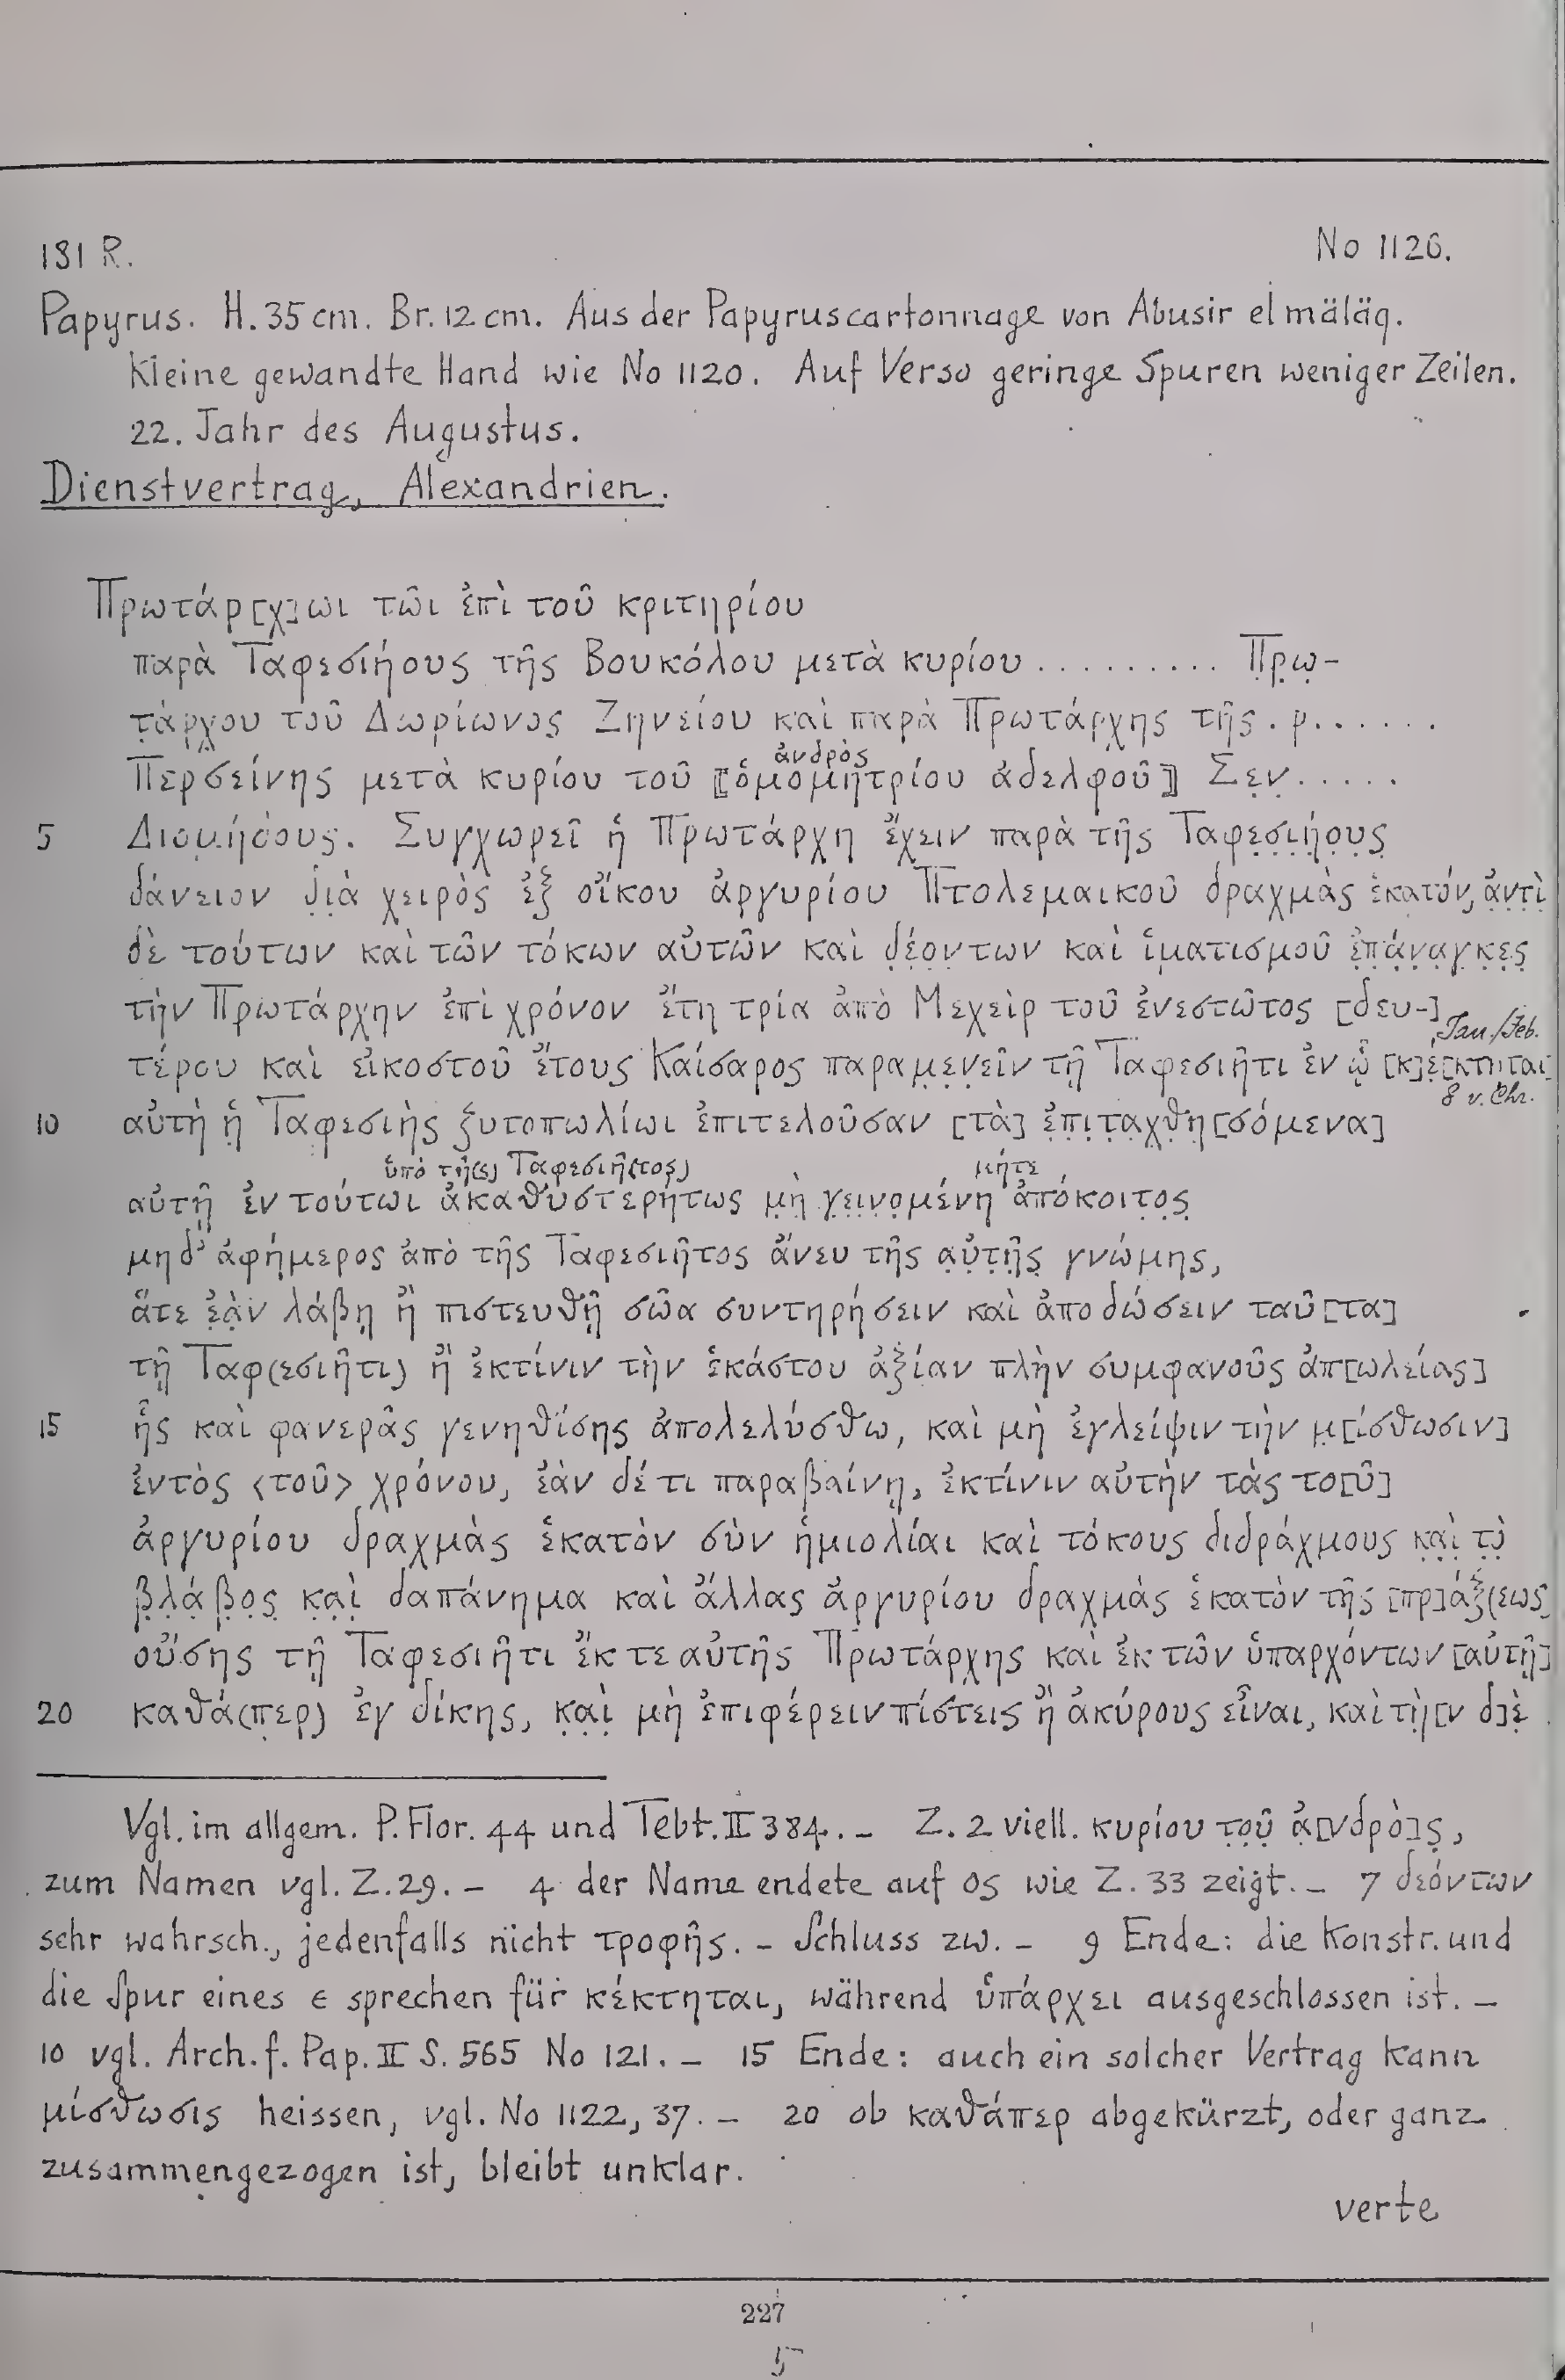 181 R. No 1126.
Papyrus. H. 35 cm. Br. 12 cm. Aus der Papyruscartonnage von Abusir el mäläq.
Kleine gewandte Hand wie No 1120. Auf Verso geringe Spuren weniger Zeilen.
22. Jahr des Augustus.
Dienstvertrag, Alexandrien.
Πρωτάρ[χ]ωι τῶι ἐπὶ τοῦ κριτηρίου
παρὰ Ταφεσιήους τῆς Βουκόλου μετὰ κυρίου ......... Π̣ρ̣ω̣-
τ̣ά̣ρ̣χου τοῦ Δωρίωνος Ζηνείου καὶ παρὰ Πρωτάρχης τῆς . ρ......
ἀνδρὸς
Περσείνης μετὰ κυρίου τοῦ ⟦ὁμομητρίου ἀδελφοῦ⟧ Σε̣ν̣.....
5 Διομήδους. Συγχωρεῖ ἡ Πρωτάρχη ἔχειν παρὰ τῆς Ταφε̣σ̣ι̣ή̣ο̣υ̣ς̣
δάνειον δ̣ι̣ὰ χειρὸς ἐξ οἴκου ἀργυρίου Πτολεμαικοῦ δραχμὰς ἑκατόν, ἀ̣ν̣τ̣ὶ̣
δὲ τούτων καὶ τῶν τόκων αὐτῶν καὶ δ̣ε̣ό̣ν̣των καὶ ἱματισμοῦ ἐ̣π̣ά̣ν̣α̣γ̣κ̣ε̣ς̣
τὴν Πρωτάρχην ἐπὶ χρόνον ἔτη τρία ἀπὸ Μεχεὶρ τοῦ ἐνεστῶτος [δευ-]
Jan./Feb.
τέρου καὶ εἰκοστοῦ ἔτους Καίσαρος παραμ̣ε̣ν̣εῖν τῇ Ταφεσιῆτι ἐν ᾧ̣ [κ]έ̣[κτηται]
8 v. Chr.
10 αὐτὴ ἡ̣ Ταφεσιὴς ζυτοπωλίωι ἐπιτελοῦσαν [τὰ] ἐ̣π̣ι̣τ̣α̣χ̣θ̣η̣[σόμενα]
ὑπὸ τῆ(ς) Ταφεσιῆ(τος) μήτε
αὐτῇ ἐν τούτωι ἀκαθυστερήτως μ̣ὴ̣ γ̣ε̣ι̣ν̣ο̣μένη ἀπόκοιτ̣ο̣ς̣
μηδ' ἀφήμερος ἀπὸ τῆς Ταφεσιῆτος ἄνευ τῆς α̣ὐ̣τ̣ῆ̣ς̣ γνώμης,
ἅτε ἐ̣ὰ̣ν λάβῃ ἢ πιστευθῇ σῶα συντηρήσειν καὶ ἀποδώσειν ταῦ[τα]
τῇ Ταφ(εσιῆτι) ἢ ἐκτίνιν τὴν ἑκάστου ἀξίαν πλὴν συμφανοῦς ἀπ[ωλείας]
15 ἧς καὶ φανερᾶς γενηθίσης ἀπολελύσθω, καὶ μὴ ἐγλείψιν τὴν μ̣[ίσθωσιν]
ἐντὸς <τοῦ> χρόνου, ἐὰν δέ τι παραβαίνῃ, ἐκτίνιν αὐτὴν τάς το[ῦ]
ἀργυρίου δραχμὰς ἑκατὸν σὺν ἡμιολίαι καὶ τόκους διδράχμους κ̣α̣ὶ̣ τ̣ὸ̣
β̣λ̣ά̣β̣ο̣ς̣ κ̣α̣ὶ̣ δαπάνημα καὶ ἄλλας ἀργυρίου δραχμὰς ἑκατὸν τῆς [πρ]άξ(εως)
οὔσης τῇ Ταφεσιῆτι ἔκ τε αὐτῆς Πρωτάρχης καὶ ἐκ τῶν ὑπαρχόντων [αὐτῇ]
20 καθά(περ) ἐγ δίκης, κ̣α̣ὶ̣ μὴ ἐπιφέρειν πίστεις ἢ ἀκύρους εἶναι, καὶ τὴ̣[ν δ]ὲ̣
Vgl. im allgem. P. Flor. 44 und Tebt. II 384. – Z. 2 viell. κυρίου τ̣ο̣ῦ̣ ἀ̣[νδρὸ]ς̣,
zum Namen vgl. Z. 29. – 4 der Name endete auf ος wie Z. 33 zeigt. – 7 δεόντων
sehr wahrsch., jedenfalls nicht τροφῆς. – Schluss zw. – 9 Ende: die Konstr. und
die Spur eines ε sprechen für κέκτηται, während ὑπάρχει ausgeschlossen ist. –
10 vgl. Arch. f. Pap. II S. 565 No 121. – 15 Ende: auch ein solcher Vertrag kann
μίσθωσις heissen, vgl. No 1122, 37. – 20 ob καθάπερ abgekürzt, oder ganz
zusammengezogen ist, bleibt unklar.
verte
227